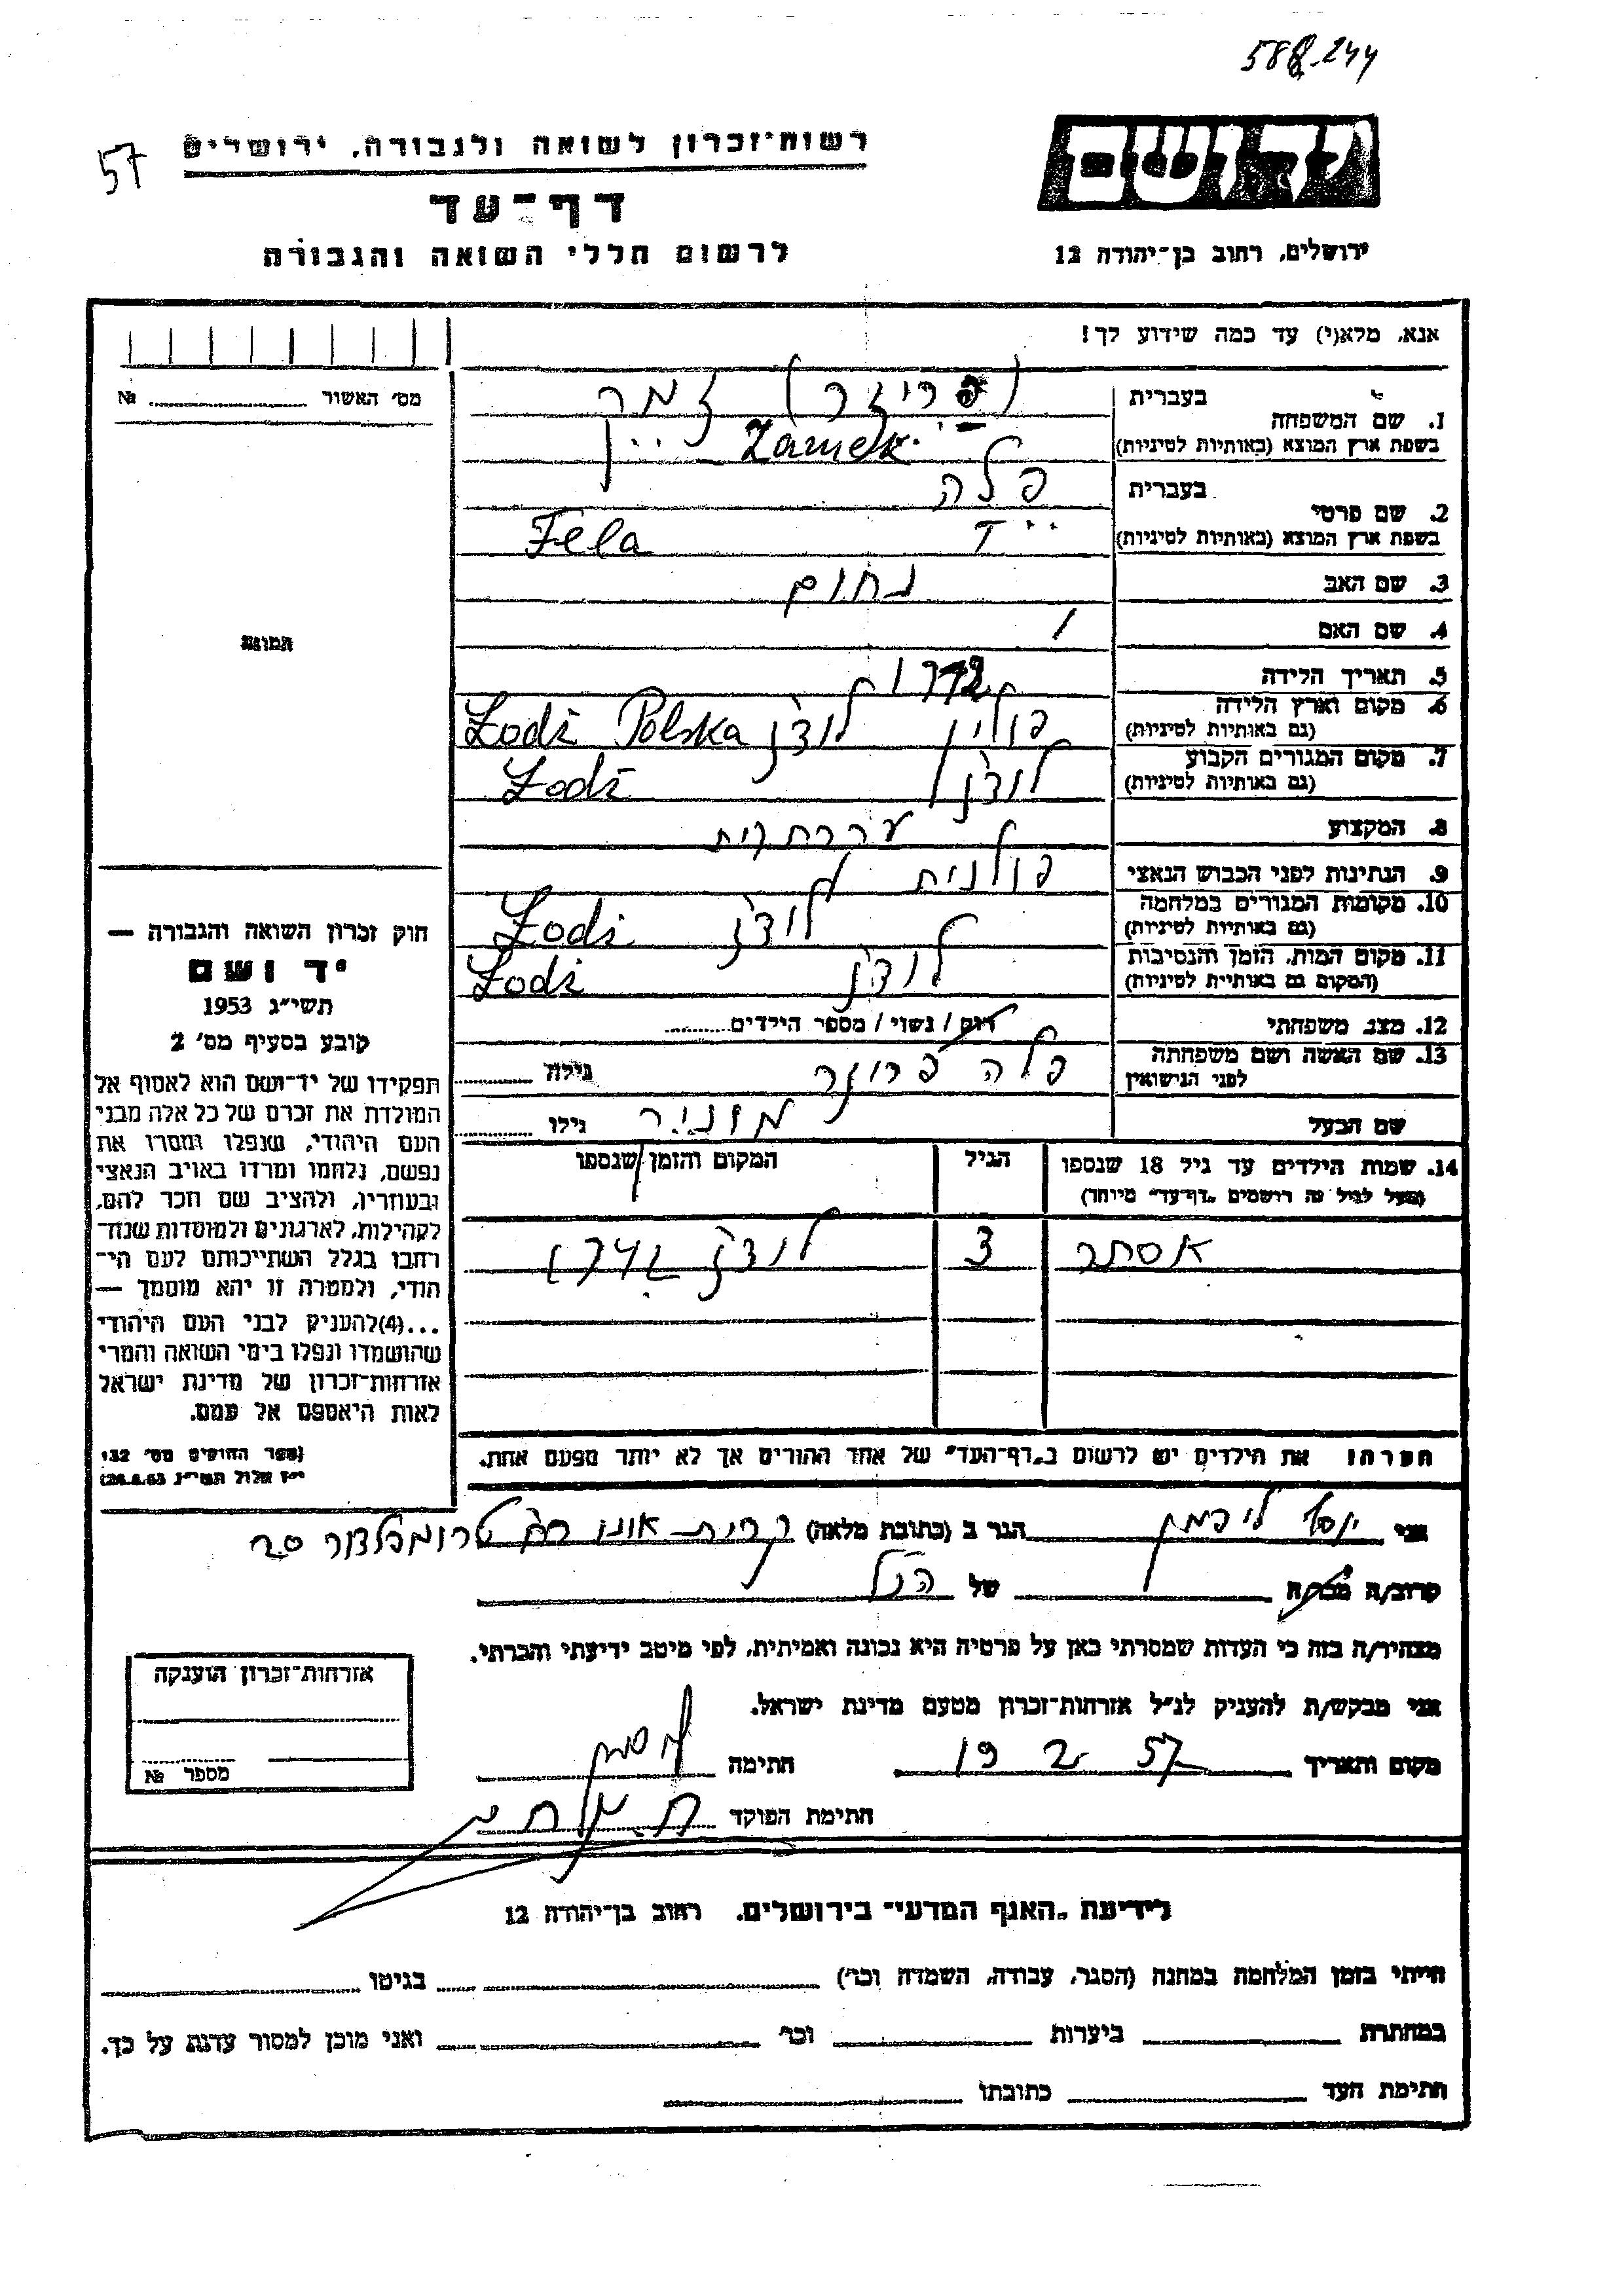 588-244
57
רשות־זכרון לשואה ולגבורה, ירושלים
דף־עד
לרשום חללי השואה והגבורה
יד ושם
ירושלים, רחוב בן־יהודה 12
אנא, מלא(י) עד כמה שידוע לך!
מס׳ האשור №
תמונה
1. שם המשפחה
בעברית
זמר
בשפת ארץ המוצא (באותיות לטיניות)
Zamek
2. שם פרטי
בעברית
פלה
בשפת ארץ המוצא (באותיות לטיניות)
Fela
3. שם האב נחום
4. שם האם /
5. תאריך הלידה
6. מקום וארץ הלידה
(גם באותיות לטיניות)
פולין לודז׳ Łodź Polska
7. מקום המגורים הקבוע
(גם באותיות לטיניות)
לודז׳ Łodź
8. המקצוע עקרת בית
9. הנתינות לפני הכבוש הנאצי פולנית
10. מקומות המגורים במלחמה
(גם באותיות לטיניות)
לודז׳ Łodź
11. מקום המות, הזמן והנסיבות
(המקום גם באותיות לטיניות)
לודז׳ Łodź
12. מצב משפחתי רווק / נשוי / מספר הילדים
13. שם האשה ושם משפחתה
לפני הנישואין
פלה גילה
שם הבעל גילו
14. שמות הילדים עד גיל 18 שנספו
(מעל לגיל זה רושמים „דף־עד״ מיוחד)
הגיל
המקום והזמן שנספו
אסתר 3 לודז׳
חוק זכרון השואה והגבורה —
יד ושם
תשי״ג 1953
קובע בסעיף מס׳ 2
תפקידו של יד־ושם הוא לאסוף אל
המולדת את זכרם של כל אלה מבני
העם היהודי, שנפלו ומסרו את
נפשם, נלחמו ומרדו באויב הנאצי
ובעוזריו, ולהציב שם וזכר להם,
לקהילות, לארגונים ולמוסדות שנח־
רבו בגלל השתייכותם לעם הי־
הודי, ולמטרה זו יהא מוסמך —
...(4)להעניק לבני העם היהודי
שהושמדו ונפלו בימי השואה והמרי
אזרחות־זכרון של מדינת ישראל
לאות היאספם אל עמם.
(ספר החוקים מס׳ 132
י״ז אלול תשי״ג 28.8.53)
הערה: את הילדים יש לרשום ב„דף־העד״ של אחד ההורים אך לא יותר מפעם אחת.
אני יוסף ליפמן הגר ב (כתובת מלאה) קרית אונו רח׳ טרומפלדור 20
קרוב/ה מכר/ה של הנ״ל
מצהיר/ה בזה כי העדות שמסרתי כאן על פרטיה היא נכונה ואמיתית, לפי מיטב ידיעתי והכרתי.
אני מבקש/ת להעניק לנ״ל אזרחות־זכרון מטעם מדינת ישראל.
מקום ותאריך 19 2 57 חתימה
חתימת הפוקד
אזרחות־זכרון הוענקה
מספר №
לידיעת „האגף המדעי״ בירושלים, רחוב בן־יהודה 12
הייתי בזמן המלחמה במחנה (הסגר, עבודה, השמדה וכו׳) בגיטו
במחתרת ביערות וכו׳ ואני מוכן למסור עדות על כך.
חתימת העד כתובתו